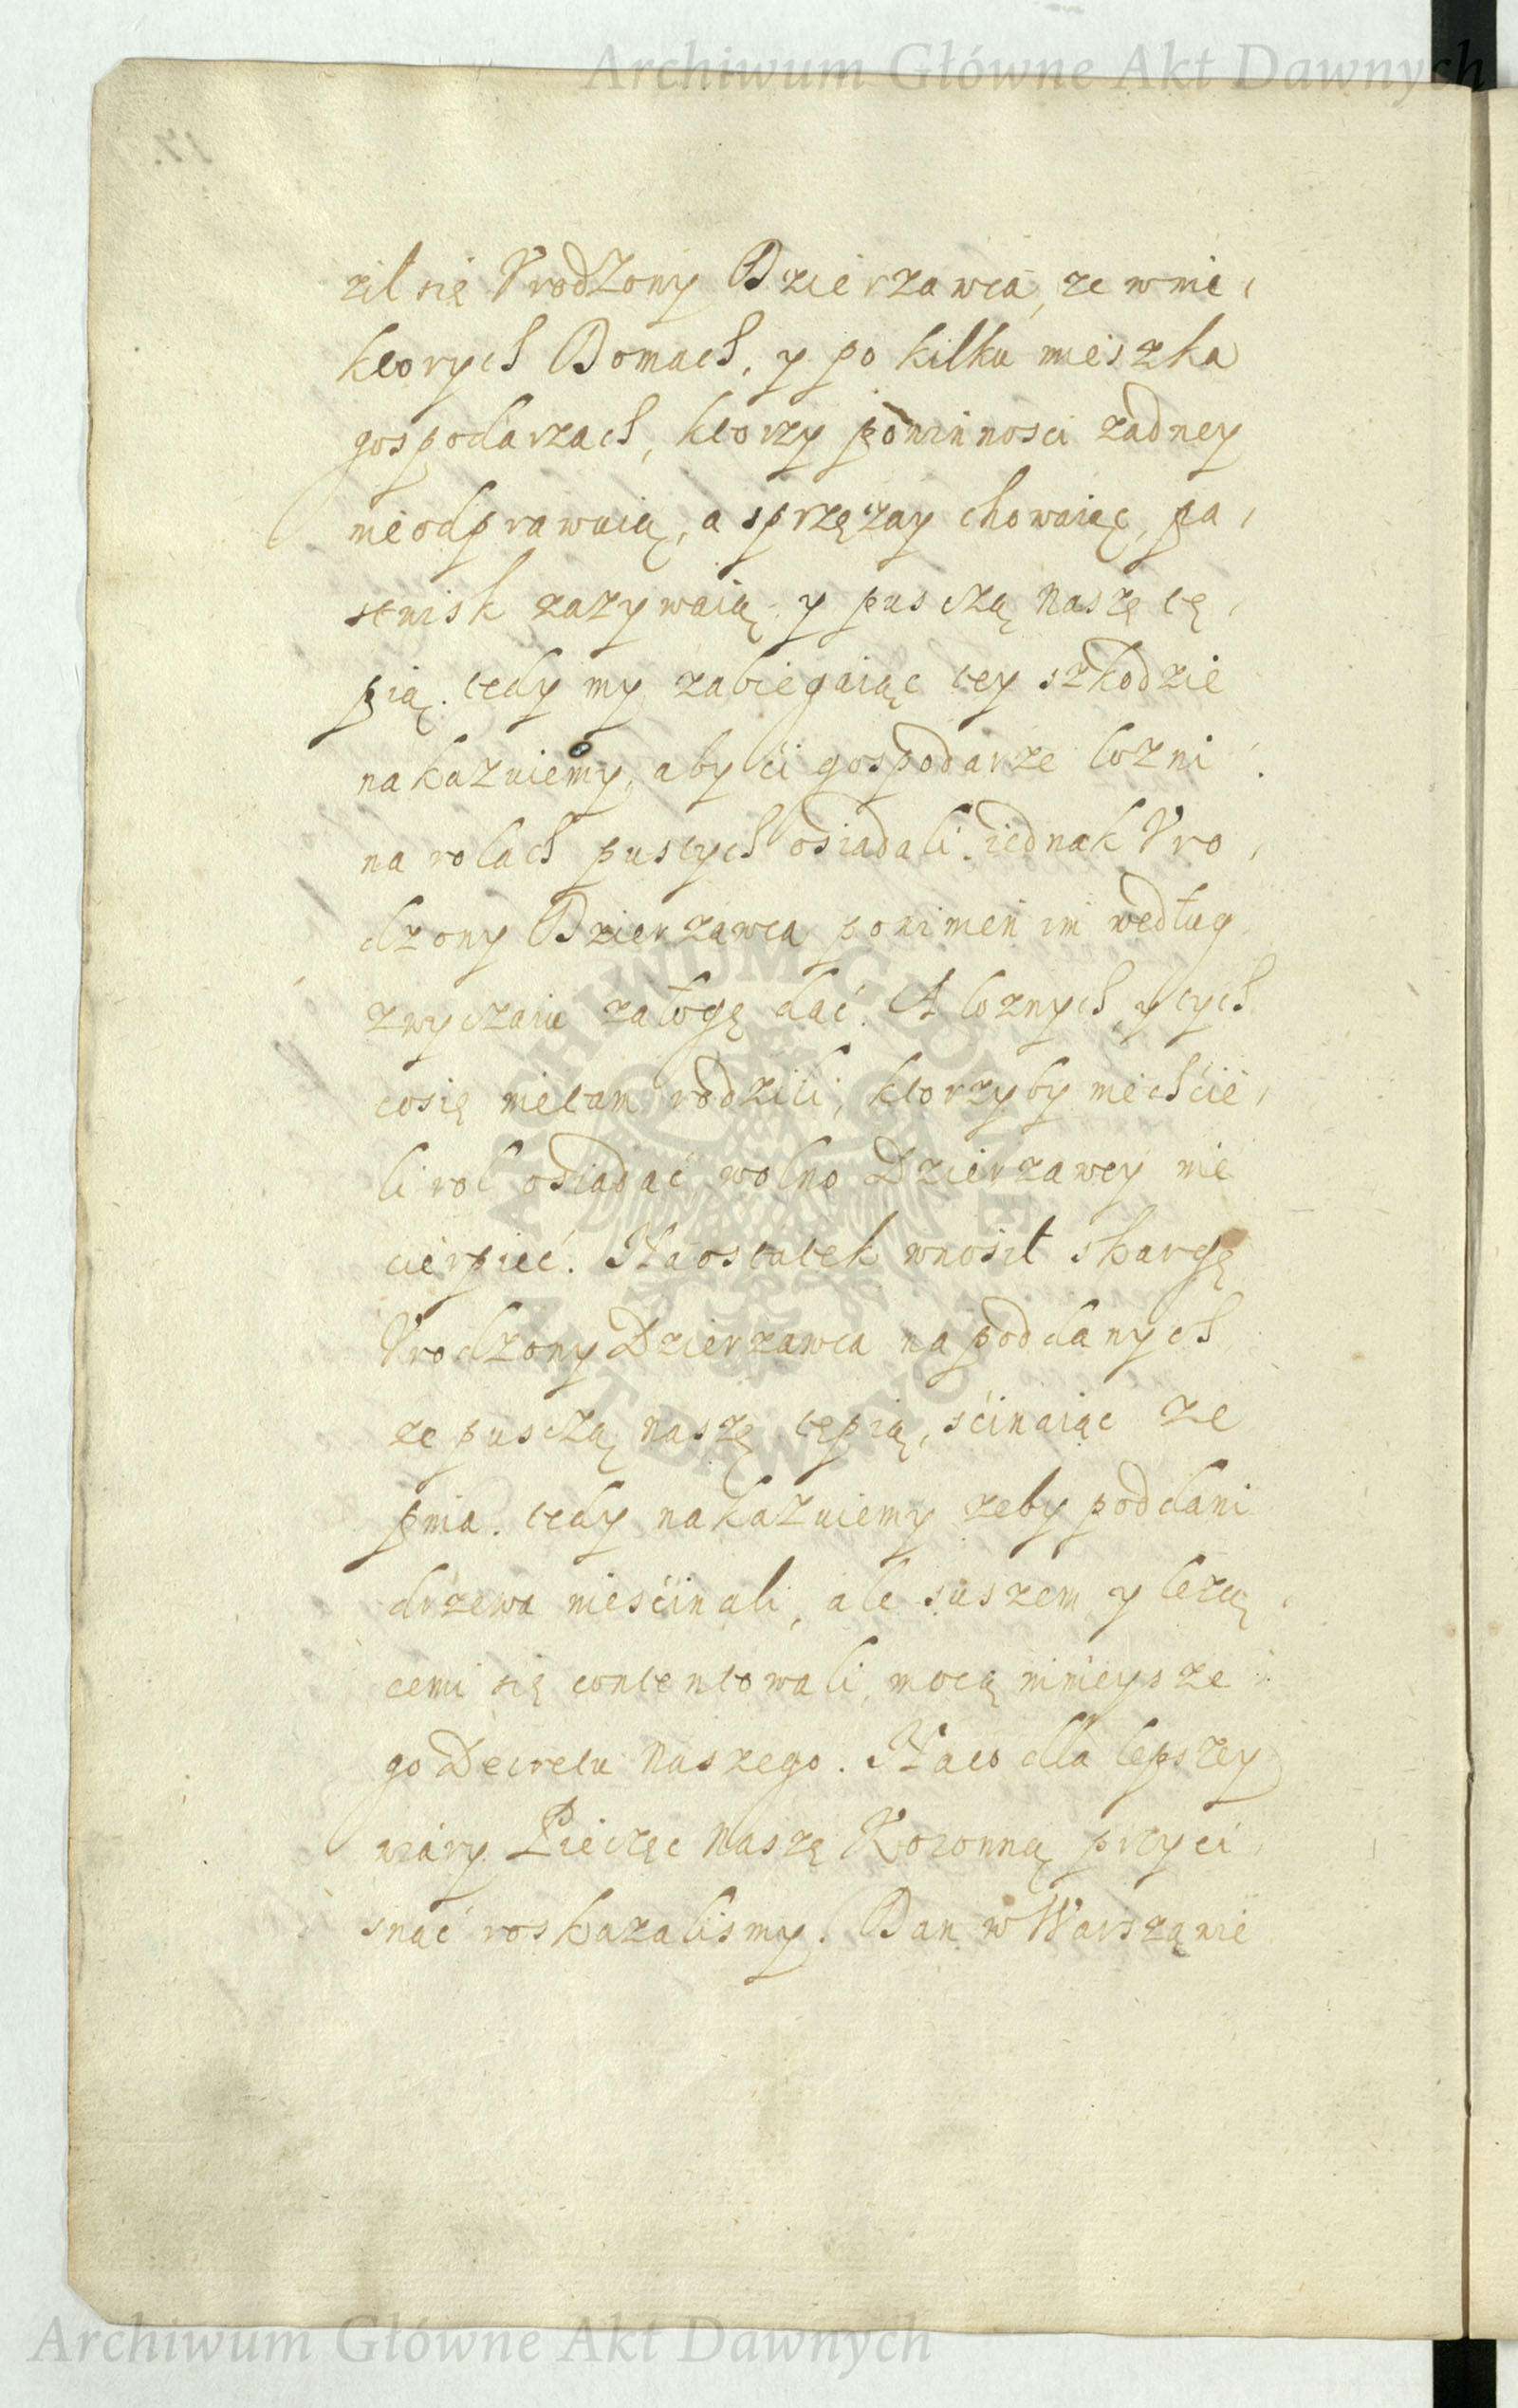 Archiwum Główne Akt Dawnych
żił się Vrodzony Dzierzawca, ze w nie,
ktorych Domach, y po kilku mieszka
gospodarzach, ktorzy powinnosci zadney
nieodprawuią, a sprzęzay chowaiąc, pa,
stwisk zazywaią y pusczą naszę tę,
pią. tedy my zabiegaiąc tey szkodzie
nakazuiemy, aby ći gospodarze lozni
na rolach pustych osiadali. iednak Vro,
dzony Dzierzawca powinień im według
zwyczaiu załogę dać. A loznych, y tych
cosię nietam rodzili, ktorzyby niechćie,
li rol osiadać, wolno Dzierzawcy nie
cierpieć. Naostatek wnosił skargę
Vrodzony Dzierzawca na poddanych
ze pusczą naszę tępią, sćinaiąc ze
pnia. tedy nakazuiemy zeby poddani
drzewa niesćinali, ale suszem y lezą,
cemi się contentowali, mocą ninieysze
go Decretu naszego. Na co dla lepszey
wiáry Pieczęc naszę Koronną przyci,
snąć roskazalismy. Dan w Warszawie
ARCHIWUM GŁÓWNE
AKT DAWNYCH
Archiwum Główne Akt Dawnych